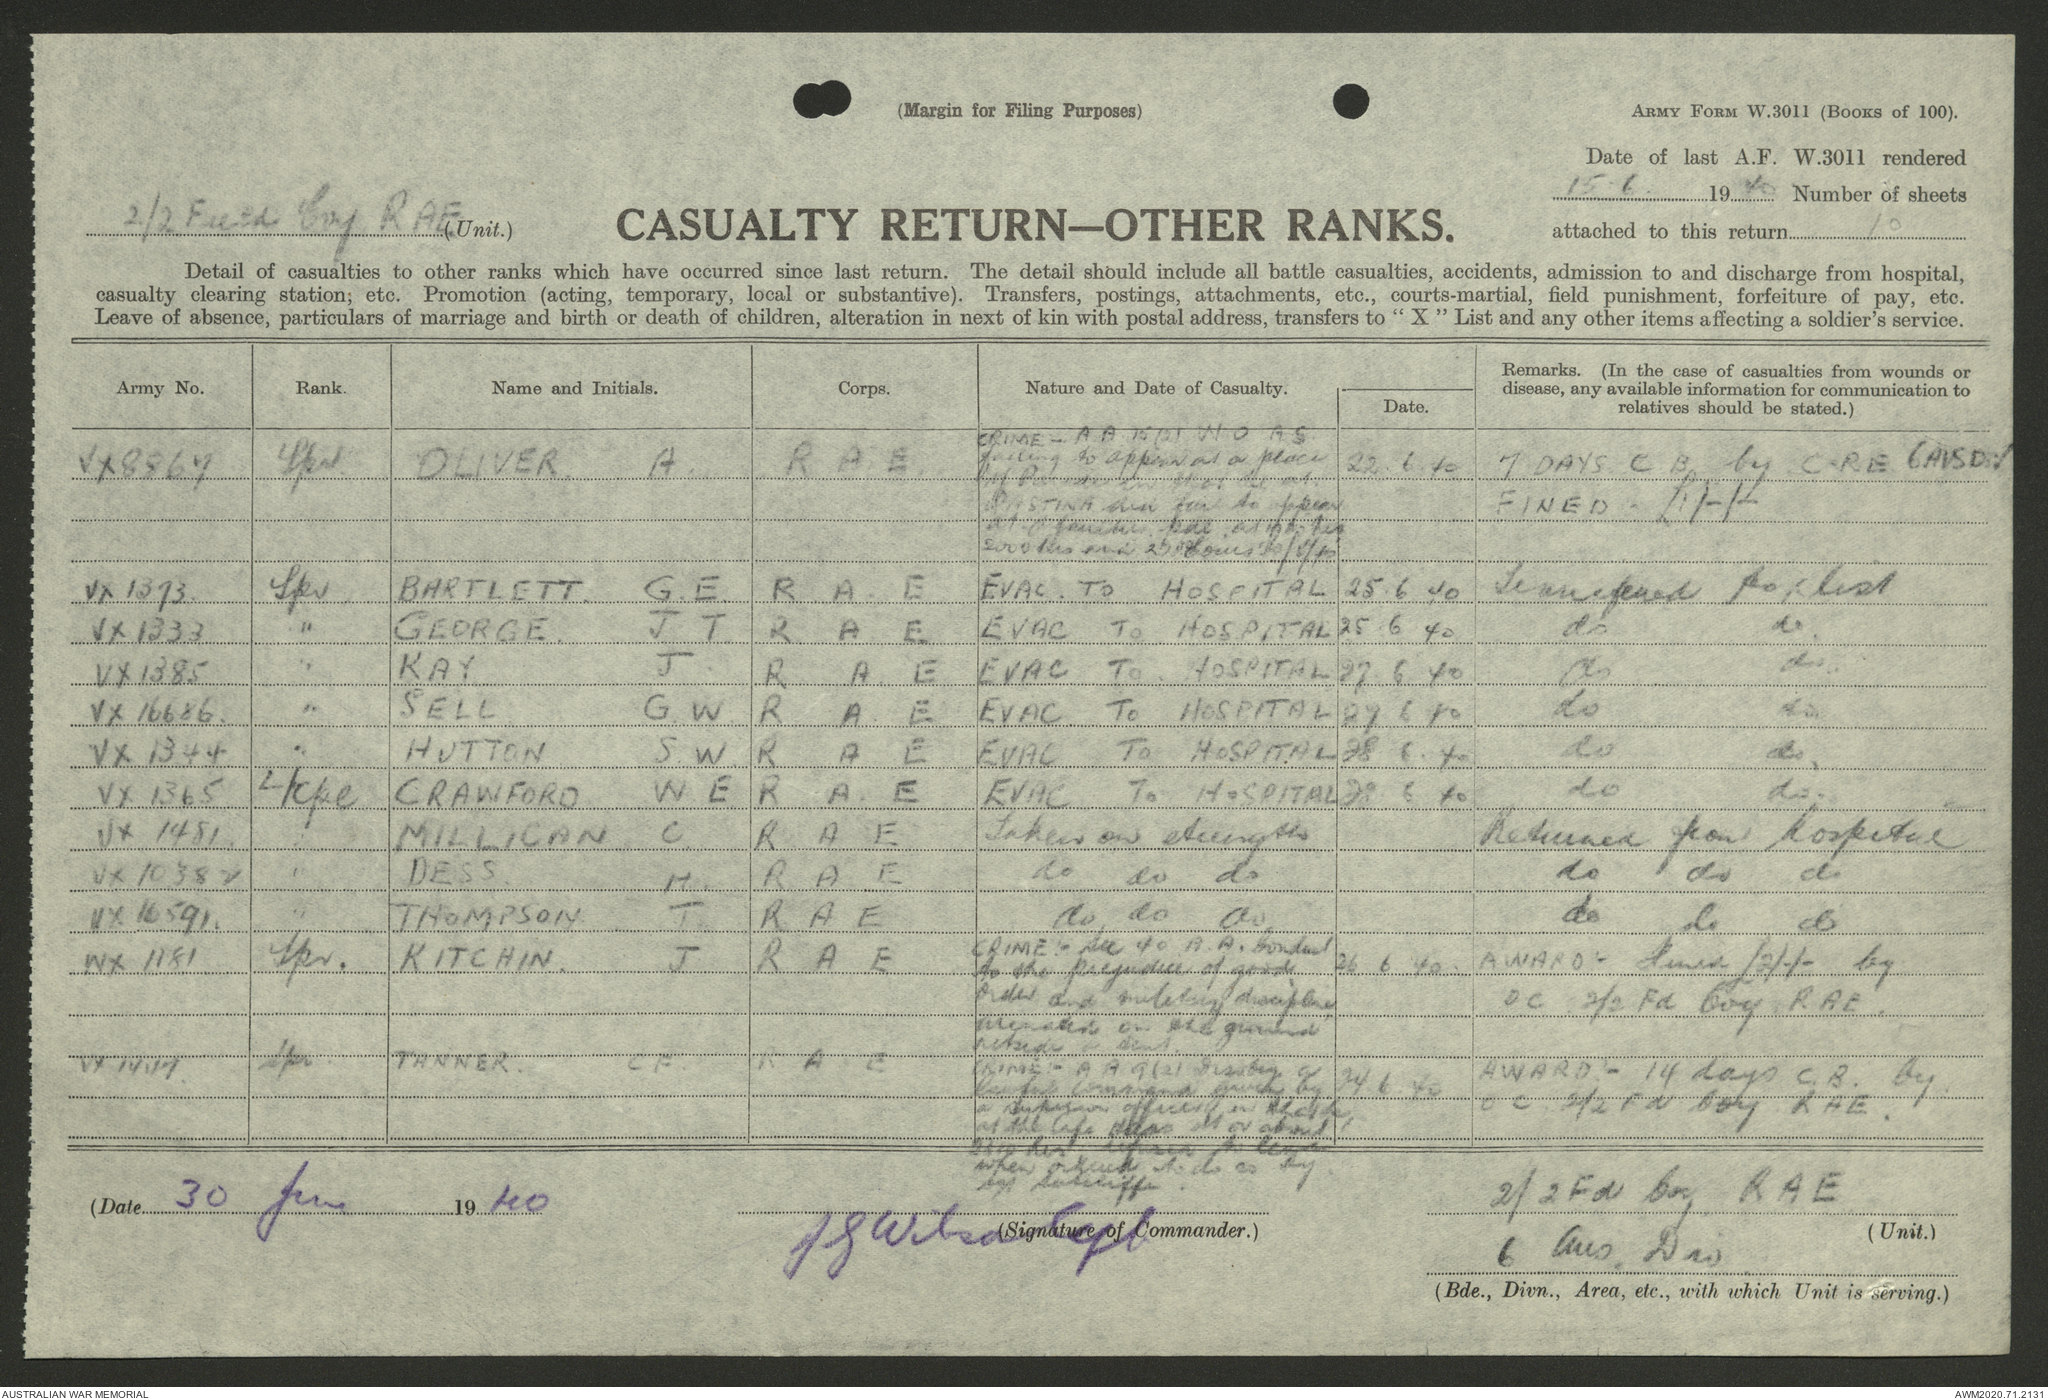 (Margin for Filing Purposes)
ARMY FORM W.3011 (BOOKS of 100).
Date of last A.F. W.3011 rendered
15.6. 1940 Number of sheets
attached to this return 10
2/2 Field Coy RAE (Unit.)
CASUALTY RETURN—OTHER RANKS.
Detail of casualties to other ranks which have occurred since last return. The detail should include all battle casualties, accidents, admission to and discharge from hospital,
casualty clearing station; etc. Promotion (acting, temporary, local or substantive). Transfers, postings, attachments, etc., courts-martial, field punishment, forfeiture of pay, etc.
Leave of absence, particulars of marriage and birth or death of children, alteration in next of kin with postal address, transfers to "X" List and any other items affecting a soldier's service.
Army No. Rank. Name and Initials. Corps. Nature and Date of Casualty. Date. Remarks. (In the case of casualties from wounds or
disease, any available information for communication to
relatives should be stated.)
CRIME:- A A 15(2) W O A S
VX8867 Spr. OLIVER. A. R A E failing to appear at a place 22.6.40 7 DAYS C B. by C.R.E 6 AUS Div
of Parade in that he at
did fail to appear FINED - £1/-/-
at
2000 hrs and
VX 1393. Spr BARTLETT. G.E R A E EVAC. TO HOSPITAL 25.6.40 Transferred to X list
VX 1333 " GEORGE. J T R A E EVAC TO HOSPITAL 25.6.40 do do.
VX 1385 " KAY J. R A E EVAC TO HOSPITAL 27.6.40 do do.
VX 16686. " SELL G.W R A E EVAC TO HOSPITAL 27.6.40 do do.
VX 1344 " HUTTON S.W R A E EVAC TO HOSPITAL 28.6.40 do do.
VX 1365 L/Cpl CRAWFORD W E R A E EVAC TO HOSPITAL 28.6.40 do do.
VX 1481. " MILLIGAN C. R A E Taken on strength Returned from hospital
VX 10382 " DESS. H. R A E do do do do do do
VX 16591. " THOMPSON T. R A E do. do do. do do do
WX 1181 Spr. KITCHIN. J R A E CRIME:- Sec 40 A.A. Conduct 26.6.40. AWARD:- Fined £2/-/- by
to the prejudice of good
order and military discipline OC 2/2 Fd Coy RAE.
urinated on the ground
outside a tent.
Spr TANNER. C F. R A E CRIME:- A A 9(2) Disobey a 24.6.40 AWARD:- 14 days C.B. by
lawful command given by
a superior officer in OC 2/2 Fd Coy RAE.
at the Cafe at or about
hrs refused to leave
when ordered to do so by
(Date 30 June 1940 JG Wilson Capt (Signature of Commander.) 2/2 Fd Coy RAE (Unit.)
6 Aus. Div.
(Bde., Divn., Area, etc., with which Unit is serving.)
AUSTRALIAN WAR MEMORIAL AWM2020.71.2131